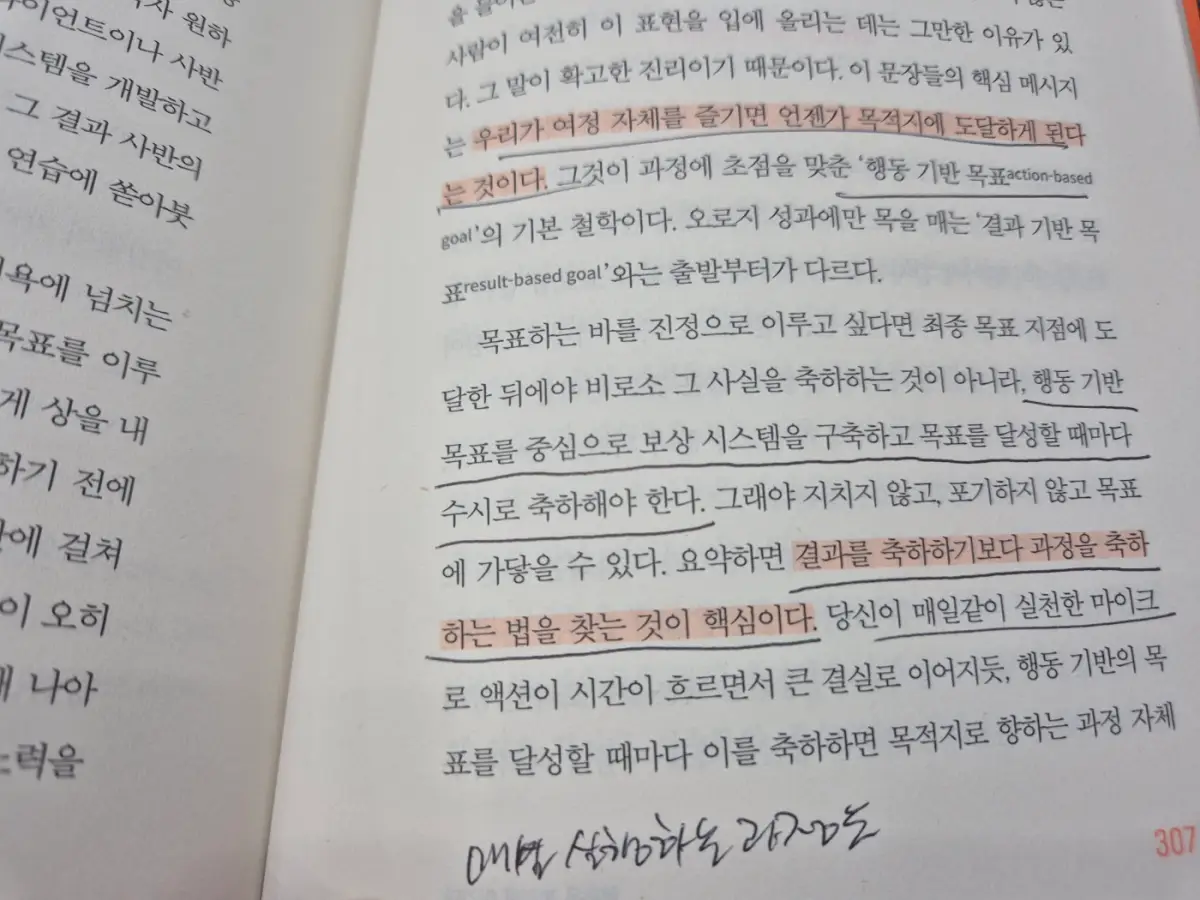 원하
이언트이나 사반
스템을 개발하고
그 결과 사반의
연습에 쏟아붓
욕에 넘치는
목표를 이루
게 상을 내
하기 전에
에 걸쳐
이 오히
나아
노력을
사람이 여전히 이 표현을 입에 올리는 데는 그만한 이유가 있
다. 그 말이 확고한 진리이기 때문이다. 이 문장들의 핵심 메시지
는 우리가 여정 자체를 즐기면 언젠가 목적지에 도달하게 된다
는 것이다. 그것이 과정에 초점을 맞춘 ‘행동 기반 목표action-based
goal’의 기본 철학이다. 오로지 성과에만 목을 매는 ‘결과 기반 목
표result-based goal’와는 출발부터가 다르다.
목표하는 바를 진정으로 이루고 싶다면 최종 목표 지점에 도
달한 뒤에야 비로소 그 사실을 축하하는 것이 아니라, 행동 기반
목표를 중심으로 보상 시스템을 구축하고 목표를 달성할 때마다
수시로 축하해야 한다. 그래야 지치지 않고, 포기하지 않고 목표
에 가닿을 수 있다. 요약하면 결과를 축하하기보다 과정을 축하
하는 법을 찾는 것이 핵심이다. 당신이 매일같이 실천한 마이크
로 액션이 시간이 흐르면서 큰 결실로 이어지듯, 행동 기반의 목
표를 달성할 때마다 이를 축하하면 목적지로 향하는 과정 자체
307